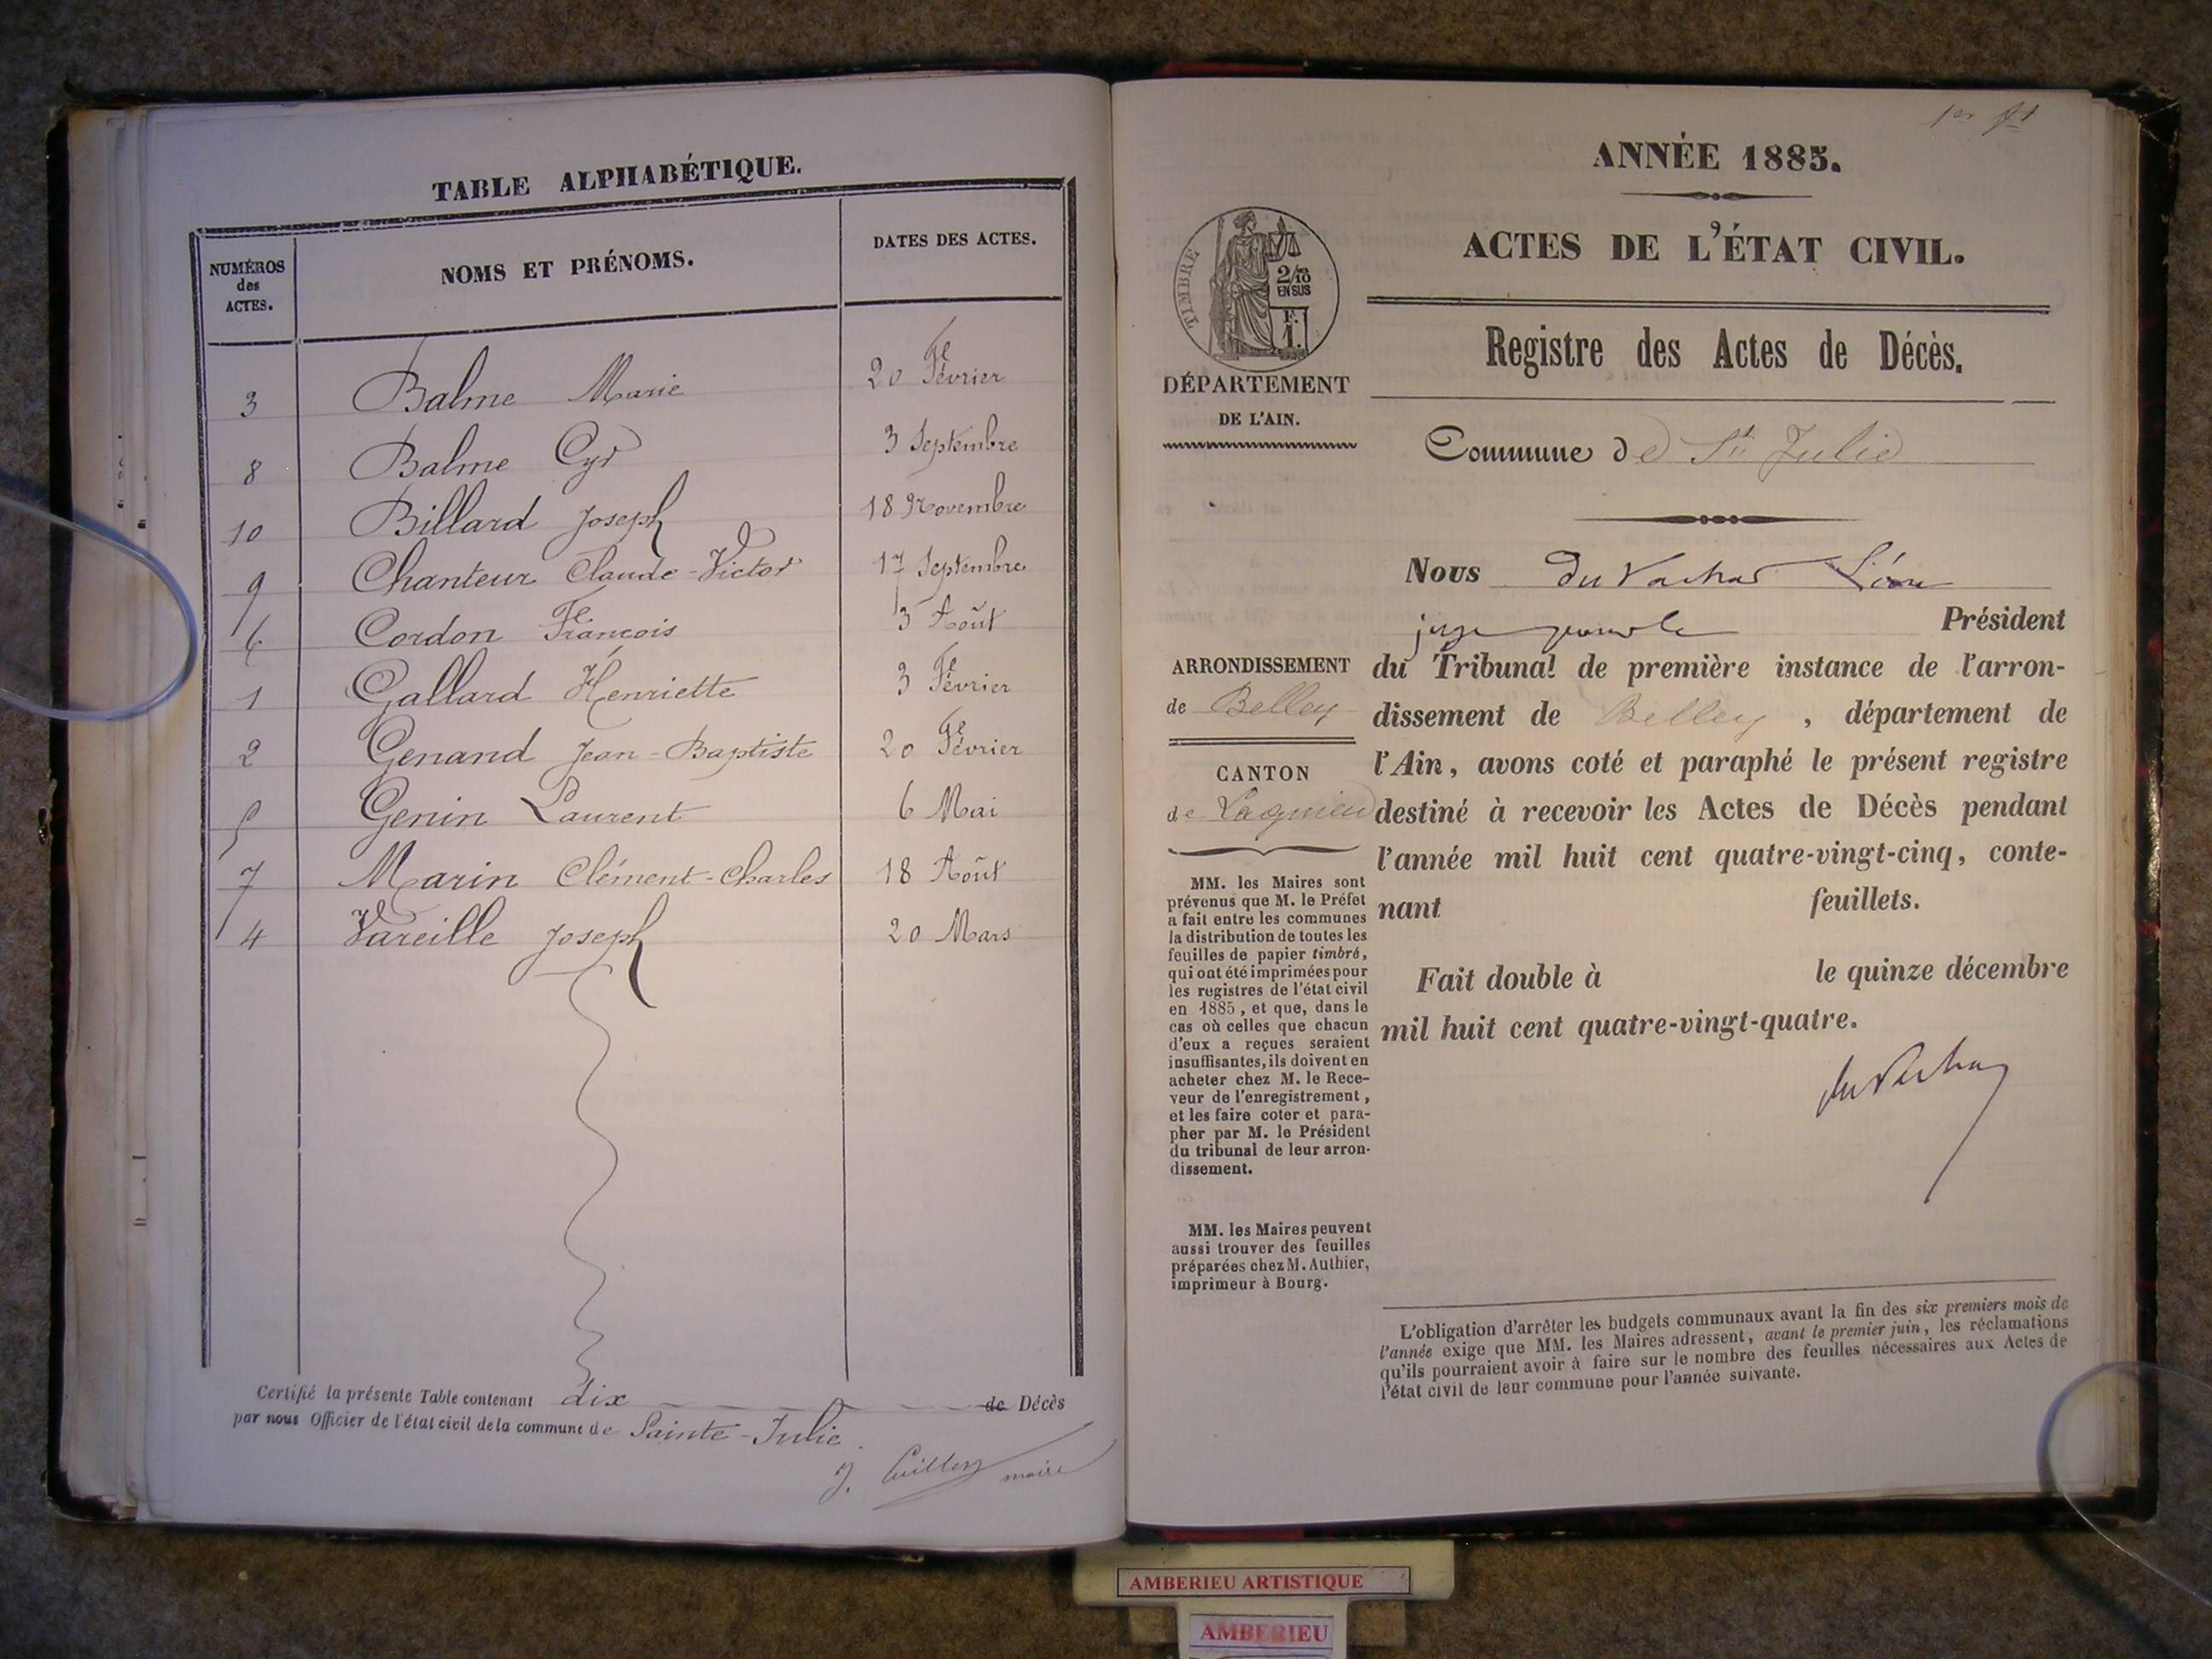 TABLE ALPHABÉTIQUE.
NUMÉROS des ACTES. NOMS ET PRÉNOMS. DATES DES ACTES.
3 Balme Marie 20 Février
8 Balme Cyr 3 Septembre
10 Billard Joseph 18 Novembre
9 Chanteur Claude-Victor 17 Septembre
6 Cordon François 3 Août
1 Gallard Henriette 3 Février
2 Genand Jean-Baptiste 20 Février
5 Genin Laurent 6 Mai
7 Marin Clément-Charles 18 Août
4 Vareille Joseph 20 Mars
Certifié la présente Table contenant dix de Décès
par nous Officier de l'état civil de la commune de Sainte-Julie
J. maire
1er
ANNÉE 1885.
ACTES DE L'ÉTAT CIVIL.
TIMBRE
2/10
EN SUS
F.
1.
Registre des Actes de Décès.
DÉPARTEMENT
DE L'AIN.
Commune de Ste Julie
Nous du Vachat Léon
juge Président
du Tribunal de première instance de l'arron-
dissement de Belley, département de
l'Ain, avons coté et paraphé le présent registre
destiné à recevoir les Actes de Décès pendant
l'année mil huit cent quatre-vingt-cinq, conte-
nant feuillets.
Fait double à le quinze décembre
mil huit cent quatre-vingt-quatre.
du Vachat
ARRONDISSEMENT
de Belley
CANTON
de Lagnieu
MM. les Maires sont
prévenus que M. le Préfet
a fait entre les communes
la distribution de toutes les
feuilles de papier timbré,
qui ont été imprimées pour
les registres de l'état civil
en 1885, et que, dans le
cas où celles que chacun
d'eux a reçues seraient
insuffisantes, ils doivent en
acheter chez M. le Rece-
veur de l'enregistrement,
et les faire coter et para-
pher par M. le Président
du tribunal de leur arron-
dissement.
MM. les Maires peuvent
aussi trouver des feuilles
préparées chez M. Authier,
imprimeur à Bourg.
L'obligation d'arrêter les budgets communaux avant la fin des six premiers mois de
l'année exige que MM. les Maires adressent, avant le premier juin, les réclamations
qu'ils pourraient avoir à faire sur le nombre des feuilles nécessaires aux Actes de
l'état civil de leur commune pour l'année suivante.
AMBERIEU ARTISTIQUE
AMBERIEU